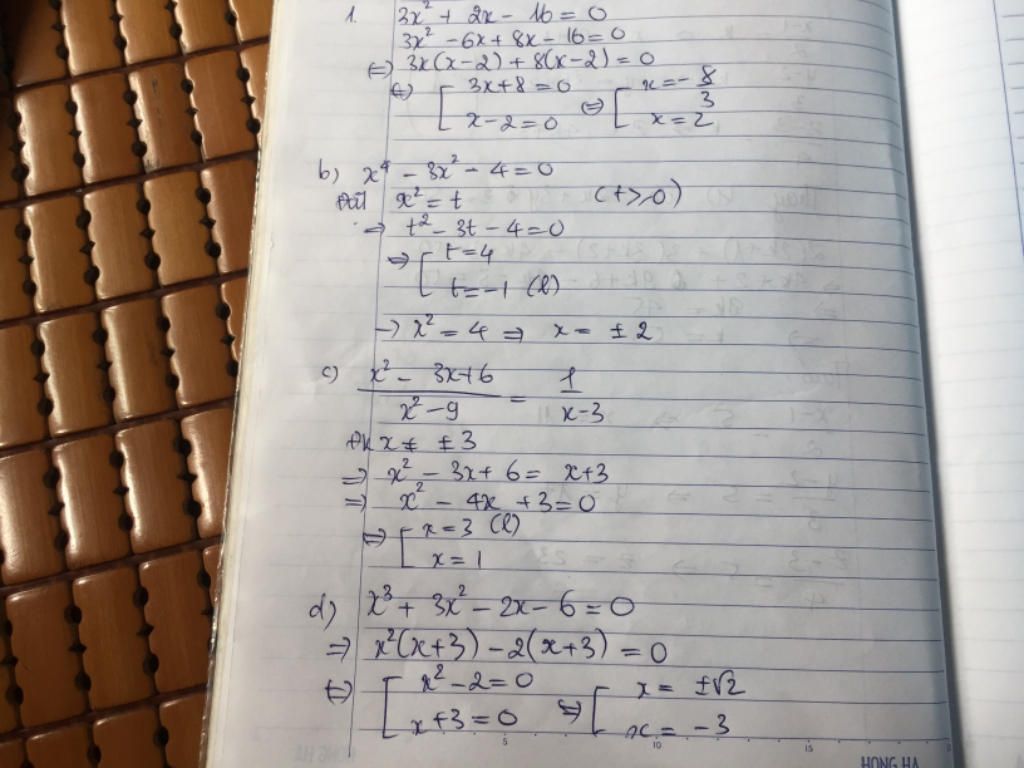 1. 3x² + 2x - 16 = 0
3x² - 6x + 8x - 16 = 0
⇔ 3x(x-2) + 8(x-2) = 0
⇔ [ 3x+8 = 0 ⇔ [ x = -8/3
x-2 = 0 x = 2
b) x⁴ - 3x² - 4 = 0
Đặt x² = t (t>0)
⇒ t² - 3t - 4 = 0
⇒ [ t = 4
t = -1 (l)
→ x² = 4 ⇒ x = ±2
c) (x² - 3x+6)/(x² - 9) = 1/(x-3)
ĐK x ≠ ±3
⇒ x² - 3x + 6 = x+3
⇒ x² - 4x + 3 = 0
⇔ [ x = 3 (l)
x = 1
d) x³ + 3x² - 2x - 6 = 0
⇒ x²(x+3) - 2(x+3) = 0
⇔ [ x² - 2 = 0 ⇔ [ x = ±√2
x+3 = 0 x = -3
5 10 15
HONG HA